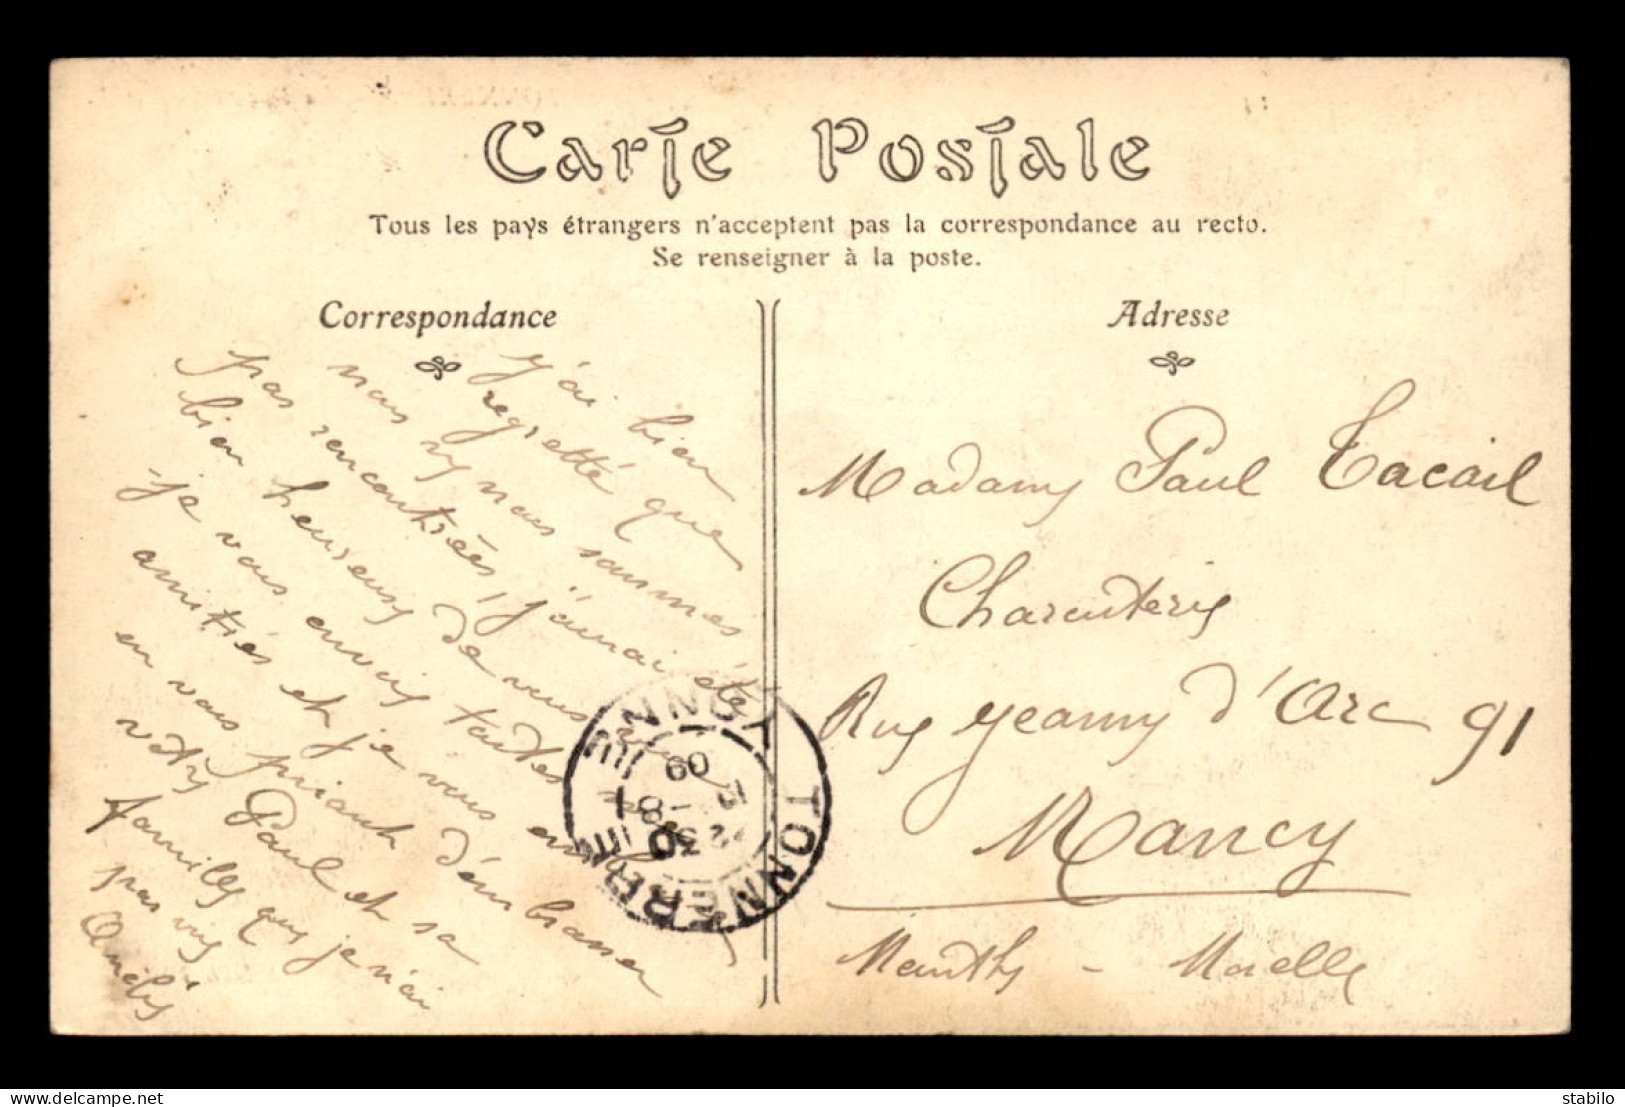 Carte Postale
Tous les pays étrangers n'acceptent pas la correspondance au recto.
Se renseigner à la poste.
Correspondance
J'ai bien
regretté que
nous ny nous sommes
pas rencontrées, j'aurai été
bien heureuse de vous
je vous envoie toutes mes
amitiés et je vous
en vous priant d'embrasser
votre Paul et sa
famille que je n'ai
pas vue
Amélie
Adresse
Madame Paul Tacail
Charcuterie
Rue Jeanne d'Arc 91
Nancy
Meurthe - Moselle
TONNERRE
YONNE
12 30
1 - 8
09
delcampe.net
stabilo